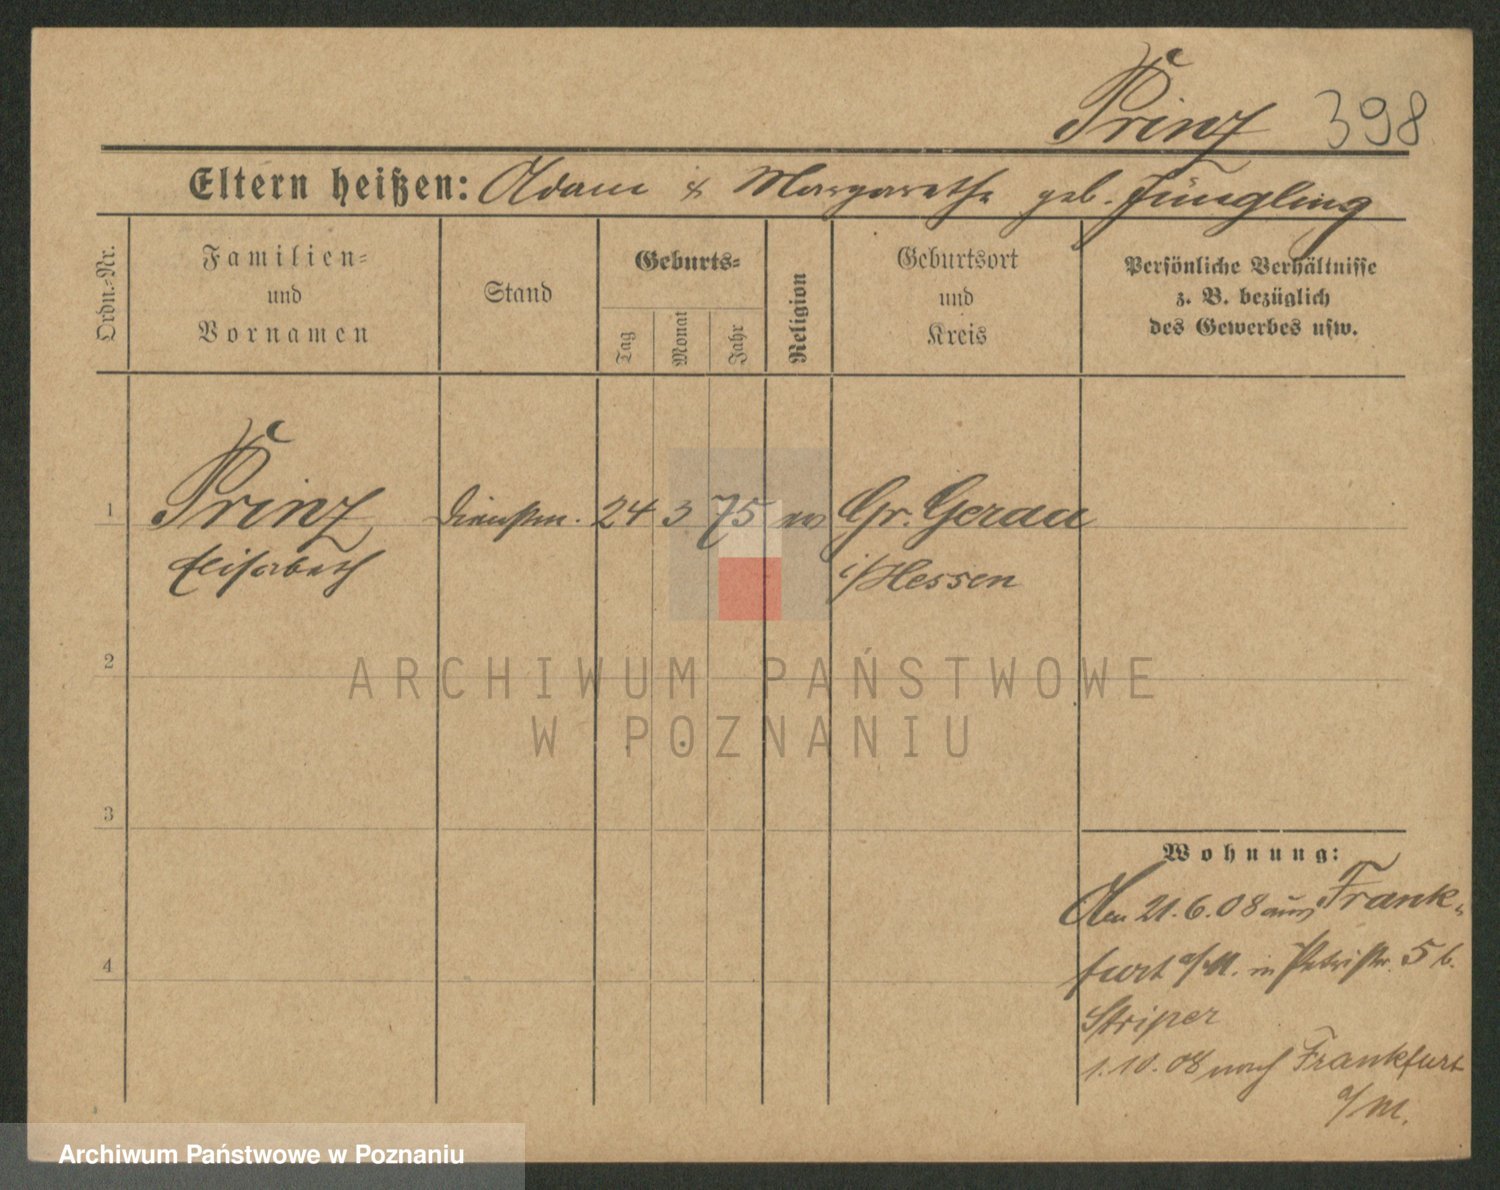 Prinz 398
Eltern heißen: Adam & Margarethe geb. Jüngling
Ordn.-Nr.
Familien-
und
Vornamen
Stand
Geburts-
Tag
Monat
Jahr
Religion
Geburtsort
und
Kreis
Persönliche Verhältnisse
z. B. bezüglich
des Gewerbes usw.
1 Prinz, 24 3 75 Gr. Gerau
Elisabeth i/Hessen
2
ARCHIWUM PAŃSTWOWE
W POZNANIU
3
Wohnung:
21.6.08 aus Frank-
4
furt a/M. in Petristr. 5 b.
Striper
1.10.08 nach Frankfurt
a/M.
Archiwum Państwowe w Poznaniu